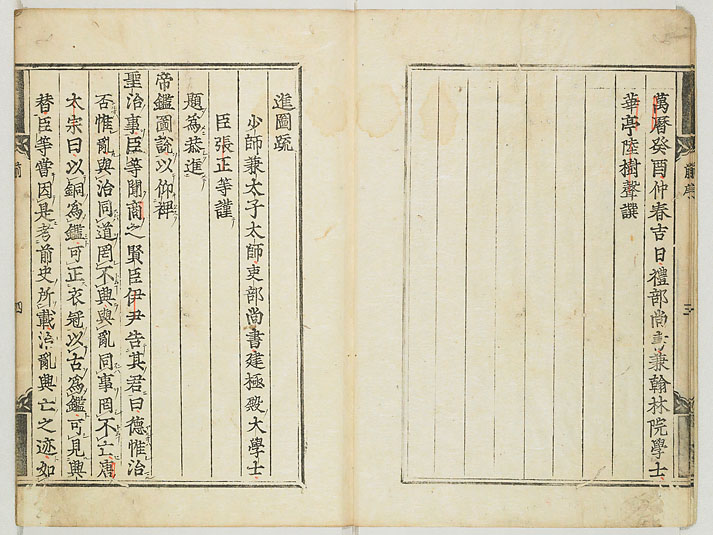 萬曆癸酉仲春吉日禮部尚書兼翰林院學士
華亭陸樹聲譔
進圖疏
少師兼太子太師吏部尚書建極殿大學士
臣張正等謹
題為恭進
帝鑑圖說以仰裨
聖治事臣等聞商之賢臣伊尹告其君曰德惟治
否惟亂與治同道罔不興與亂同事罔不亡唐
太宗曰以銅為鑑可正衣冠以古為鑑可見興
替臣等嘗因是考前史所載治亂興亡之迹如